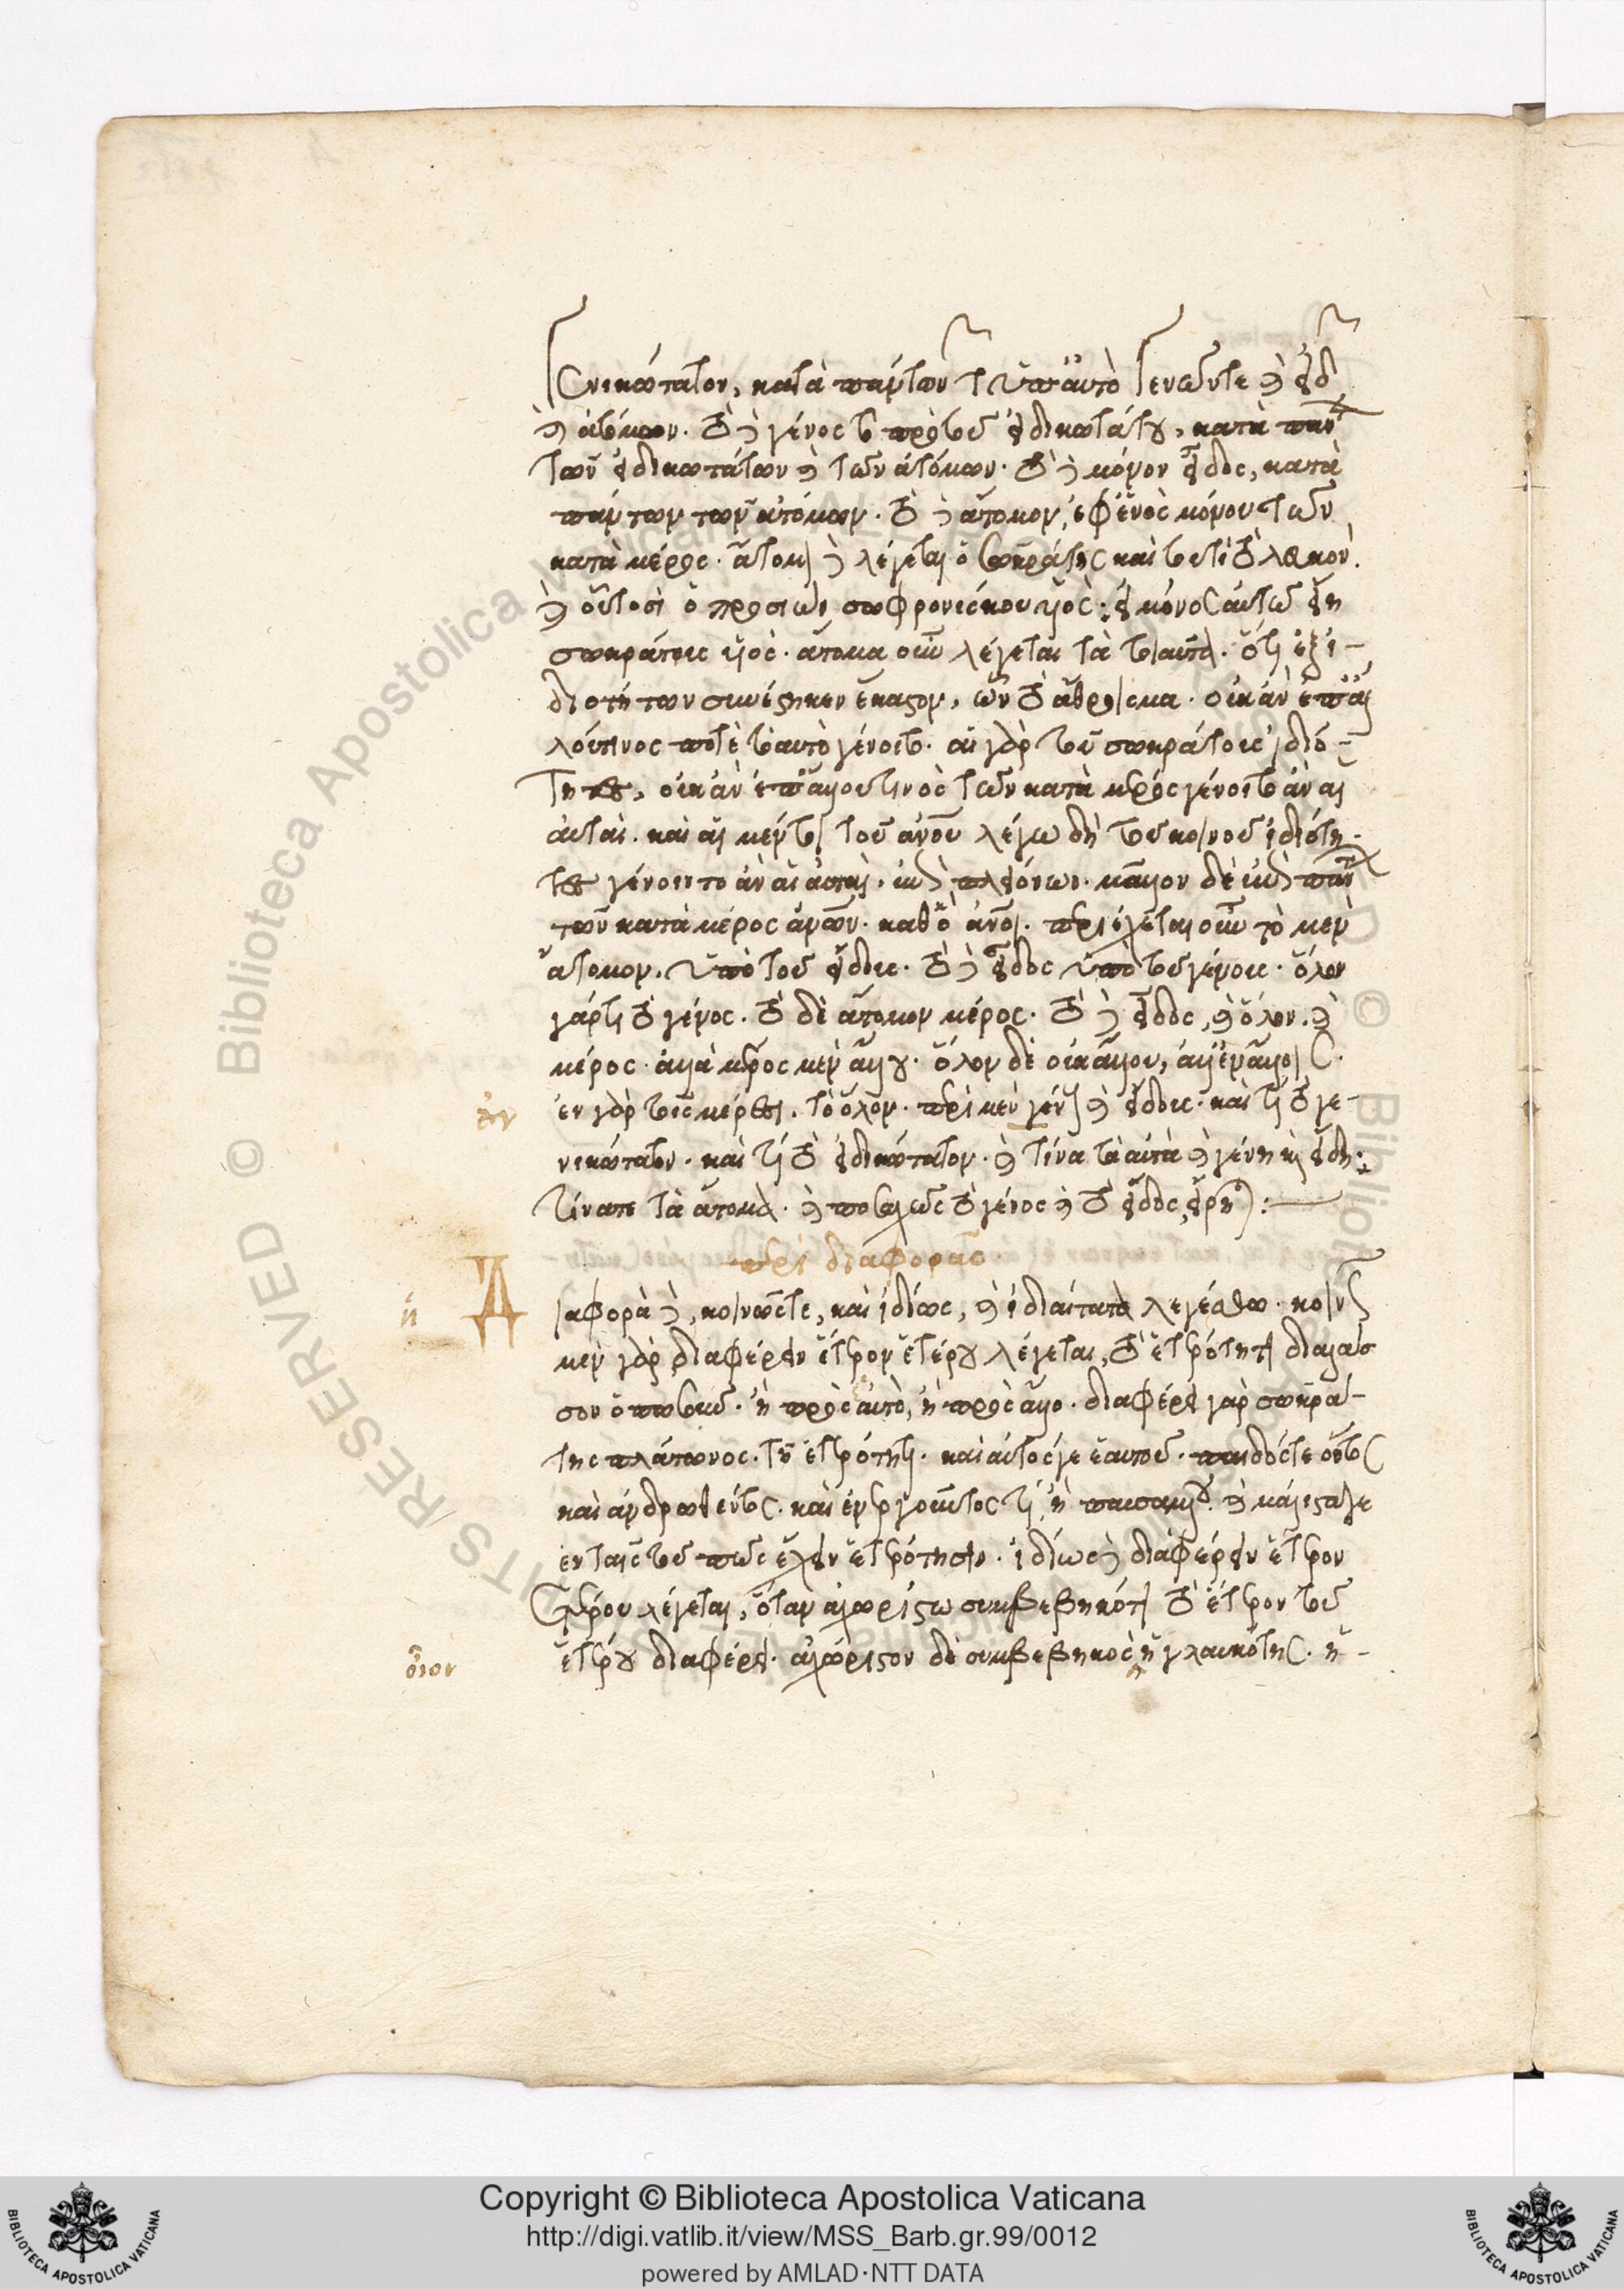 γενικώτατον, κατὰ πάντων τῶν ὑπ' αὐτὸ γενῶν τε καὶ εἰδῶν
καὶ ἀτόμων. τὸ δὲ γένος τὸ πρὸ τοῦ εἰδικωτάτου, κατὰ πάντων
τῶν εἰδικωτάτων καὶ τῶν ἀτόμων. τὸ δὲ μόνον εἶδος, κατὰ
πάντων τῶν ἀτόμων. τὸ δὲ ἄτομον, ἐφ' ἑνὸς μόνου τῶν
κατὰ μέρος. ἄτομον δὲ λέγεται ὁ Σωκράτης καὶ τουτὶ τὸ λευκόν.
καὶ οὑτοσὶ ὁ προσιὼν σωφρονίσκου υἱός. εἰ μόνος αὐτῷ εἴη
σωκράτης υἱός. ἄτομα οὖν λέγεται τὰ τοιαῦτα. ὅτι ἐξ ἰ-
διοτήτων συνέστηκεν ἕκαστον, ὧν τὸ ἄθροισμα. οὐκ ἂν ἐπ' ἄλ
λου τινος ποτὲ τὸ αὐτὸ γένοιτο. αἱ γὰρ τοῦ σωκράτους ἰδιό-
τητες, οὐκ ἂν ἐπ' ἄλλου τινὸς τῶν κατὰ μέρος γένοιτο ἂν αἱ
αὐταί. καὶ αἱ μέντοι τοῦ ἀνθρώπου λέγω δὴ τοῦ κοινοῦ ἰδιότη-
τες γένοιντο ἂν αἱ αὐταὶ. ἐπὶ πλειόνων. μᾶλλον δὲ ἐπὶ πάντων
τῶν κατὰ μέρος ἀνθρώπων. καθὸ ἄνθρωποι. περιέχεται οὖν τὸ μὲν
ἄτομον, ὑπὸ τοῦ εἴδους. τὸ δὲ εἶδος ὑπὸ τοῦ γένους. ὅλον
γάρ τι τὸ γένος. τὸ δὲ ἄτομον μέρος. τὸ δὲ εἶδος, καὶ ὅλον. καὶ
μέρος. ἀλλὰ μέρος μὲν ἄλλου. ὅλον δὲ οὐκ ἄλλου, ἀλλ' ἐν ἄλλοις.
ἐν
ἐν γὰρ τοῖς μέρεσι. τὸ ὅλον. περὶ μὲν γένους καὶ εἴδους. καὶ τί τὸ γε-
νικώτατον. καὶ τί τὸ εἰδικώτατον. καὶ τίνα τὰ αὐτὰ καὶ γένη καὶ εἴδη.
τίνα τε τὰ ἄτομα. καὶ ποσαχῶς τὸ γένος καὶ τὸ εἶδος, εἴρηται:
περὶ διαφορᾶς.
ἡ
Διαφορὰ δὲ, κοινῶς τε, καὶ ἰδίως, καὶ ἰδιαίτατα λεγέσθω. κοινῶς
μὲν γὰρ διαφέρειν ἕτερον ἑτέρου λέγεται, τὸ ἑτερότητι διαλάσ
σον ὁπωσοῦν. ἢ πρὸς αὐτὸ, ἢ πρὸς ἄλλο. διαφέρει γὰρ σωκρά-
της πλάτωνος. τῇ ἑτερότητι. καὶ αὐτός γε ἑαυτοῦ. παιδός τε ὄντος
καὶ ἀνδρωθέντος. καὶ ἐνεργοῦντός τι, ἢ παυσαμένου. καὶ μάλιστά γε
ἐν ταῖς τοῦ πῶς ἔχειν ἑτερότησιν. ἰδίως δὲ διαφέρειν ἕτερον
ἑτέρου λέγεται, ὅταν ἀχωρίστω συμβεβηκότι τὸ ἕτερον τοῦ
οἷον
ἑτέρου διαφέρει. ἀχώριστον δὲ συμβεβηκὸς ἡ γλαυκότης. ἢ-